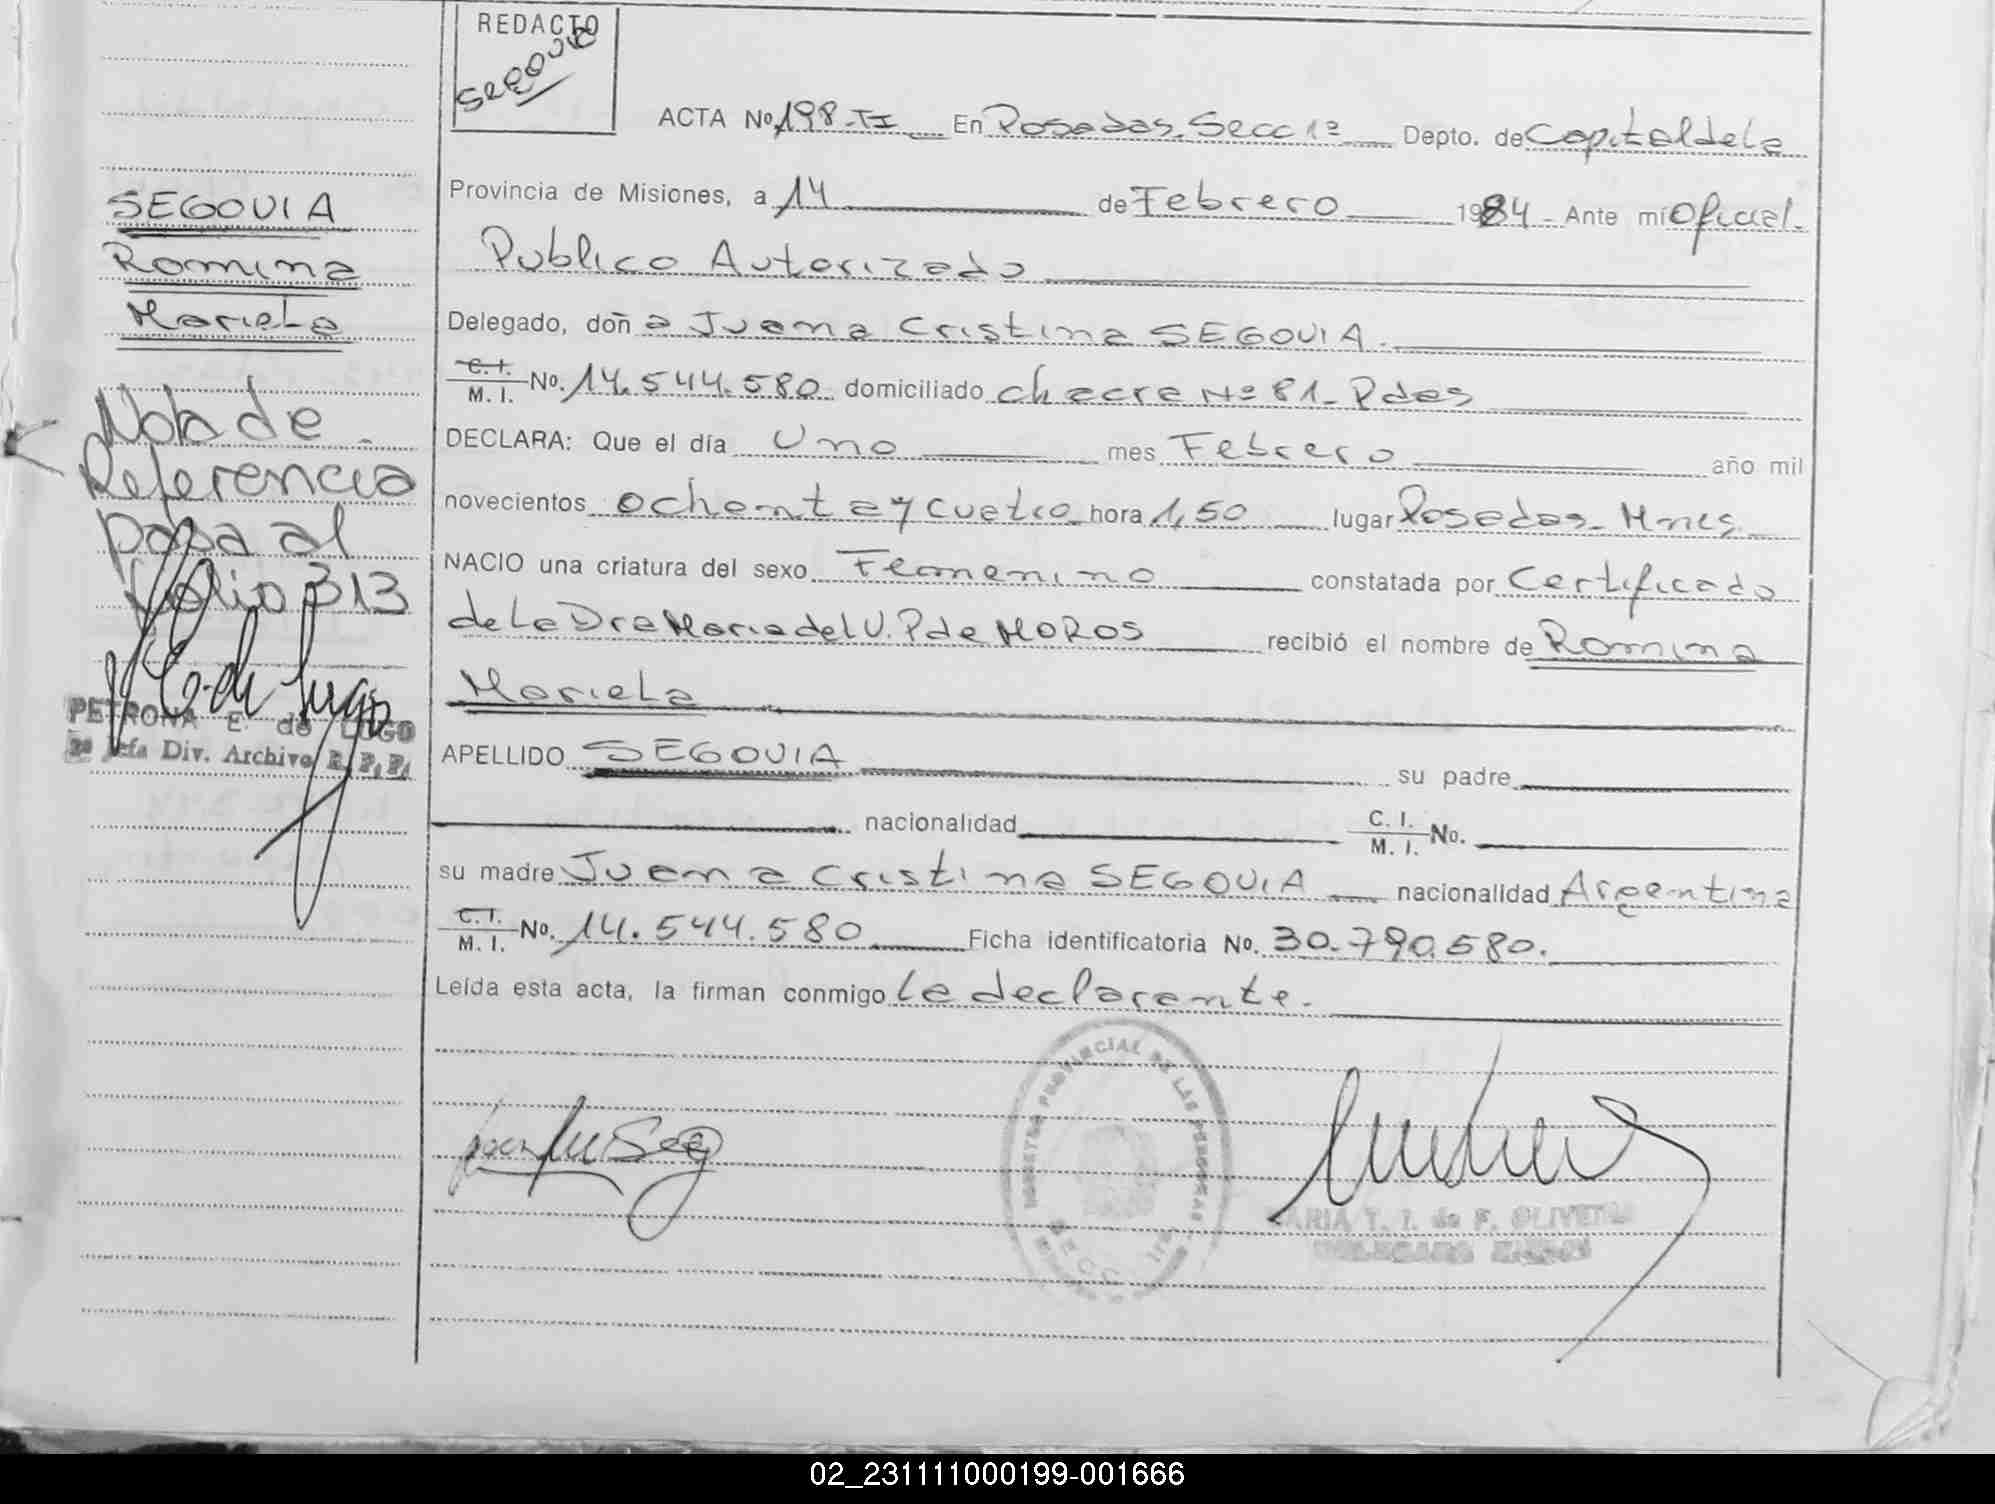 REDACTO
SEGOVIA
ACTA No 198-TI En Posadas. Secc 1ª Depto. de Capital de la
Provincia de Misiones, a 14 de Febrero 1984 - Ante mí Oficial.
Publico Autorizado
Delegado, doña Juana Cristina SEGOVIA.
C. I. M. I. No. 14.544.580 domiciliado chacra Nº 81- Pdas
DECLARA: Que el día Uno mes Febrero año mil
novecientos ochenta y cuatro hora 1,50 lugar Posadas- Mnes
NACIO una criatura del sexo Femenino constatada por Certificado
de la Dra Maria del U. P de MOROS recibió el nombre de Romina
Mariela
APELLIDO SEGOVIA su padre
nacionalidad C. I. M. I. No.
su madre Juana Cristina SEGOVIA nacionalidad Argentina
C. I. M. I. No. 14.544.580 Ficha identificatoria No. 30.790.580.
Leída esta acta, la firman conmigo la declarante.
SEGOVIA
Romina
Mariela
Nota de
Referencia
pasa al
folio 313
PETRONA E. de LUGO
Jefa Div. Archivo R. P. P.
REGISTRO PROVINCIAL DE LAS PERSONAS
MARIA T. I. de F. OLIVEIRA
02_231111000199-001666